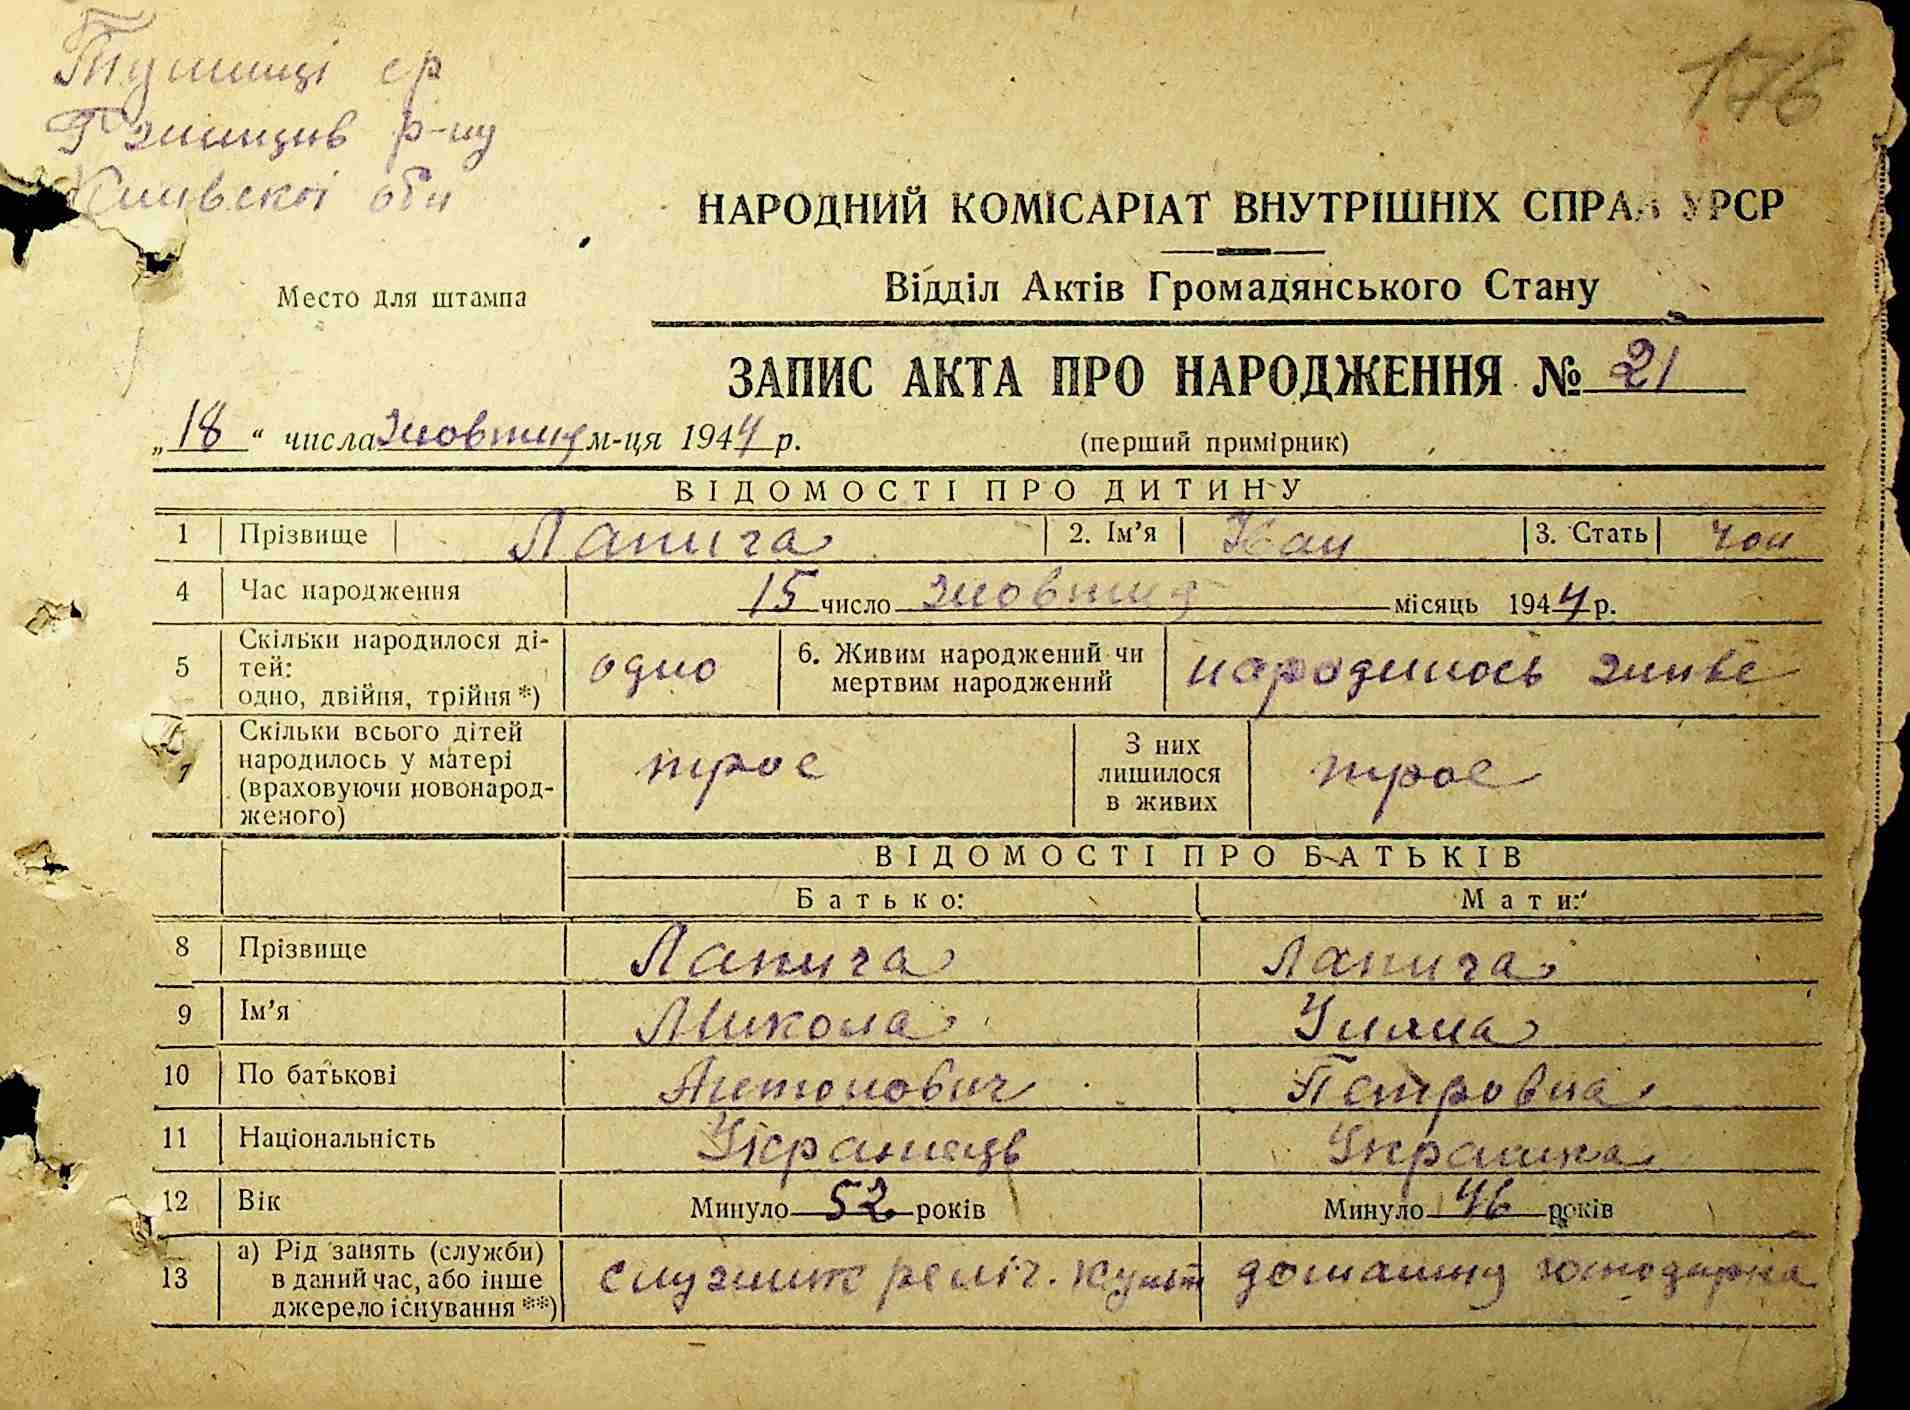 Тушниці ср
р-ну
Київскої обл
176
НАРОДНИЙ КОМІСАРІАТ ВНУТРІШНІХ СПРАВ УРСР
Відділ Актів Громадянського Стану
Место для штампа
ЗАПИС АКТА ПРО НАРОДЖЕННЯ № 21
„18“ числа жовтня м-ця 1944 р.
(перший примірник)
ВІДОМОСТІ ПРО ДИТИНУ
1 Прізвище Лапига 2. Ім'я Іван 3. Стать чол
4 Час народження 15 число жовтня місяць 1944 р.
5 Скільки народилося ді-
тей:
одно, двійня, трійня *) одно 6. Живим народжений чи
мертвим народжений народилось живе
7 Скільки всього дітей
народилось у матері
(враховуючи новонарод-
женого) троє З них
лишилося
в живих троє
ВІДОМОСТІ ПРО БАТЬКІВ
Батько: Мати:
8 Прізвище Лапига Лапига
9 Ім'я Микола Уляна
10 По батькові Антонович Петровна
11 Національність Українець Українка
12 Вік Минуло 52 років Минуло 46 років
13 а) Рід занять (служби)
в даний час, або інше
джерело існування **) служит реліг. культ домашня господарка